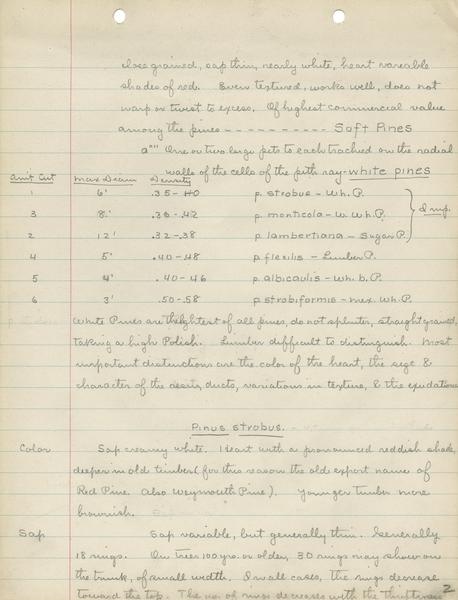 close grained, sap thin, nearly white, heart variable
shades of red. Even textured, works well, does not
warp or twist to excess. Of highest commercial value
among the pines - - - - - - - - - - - Soft Pines
a"" One or two large pits to each trachead on the radial
walls of the cells of the pith ray - white pines
Amt Cut Max Diam Density
1 6' .35-.40 p. strobus - Wh. P.
3 8' .36-.42 p. monticola - W. Wh. P.
2 12' .32-.38 p. lambertiana - Sugar P.
} Imp.
4 5' .40-.48 p. flexilis - Limber P.
5 4' .40-46 p. albicaulis - Wh. b. P.
6 3' .50-.58 p. strobiformis - Mex. Wh. P.
White Pines are the lightest of all pines, do not splinter, straight grained,
taking a high Polish. Lumber difficult to distinguish. Most
important distinctions are the color of the heart, the size &
character of the resin ducts, variations in texture, & the exudations
Pinus strobus.
Color Sap creamy white. Heart with a pronounced reddish shade,
deeper in old timber (for this reason the old export name of
Red Pine. Also Weymouth Pine). Younger timber more
brownish.
Sap Sap variable, but generally thin. Generally
18 rings. On trees 100 yrs. or older, 30 rings may show on
the trunk, of small width. In all cases, the rings decrease
toward the top. The no. of rings decreases with the thriftiness
2